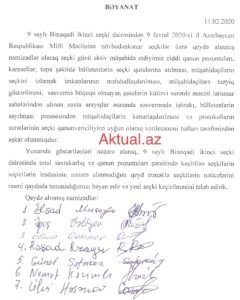 BƏYANAT
11.02.2020
9 saylı Binəqədi ikinci seçki dairəsindən 9 fevral 2020-ci il Azərbaycan
Respublikası Milli Məclisinə növbədənkənar seçkilər üzrə qeydə alınmış
namizədlər olaraq seçki günü aktiv müşahidə etdiyimiz ciddi qanun pozuntuları,
karusellər, topa şəkildə bülletenlərin seçki qutularına atılması, müşahidəçilərin
seçkini izləmək imkanlarının məhdudlaşdırılması, müşahidəçilərə təzyiq
göstərilməsi, səsvermə hüququ olmayan şəxslərin kütləvi surətdə məxsusi istismar
səhələrindən alınan saxta arayışlar əsasında səsverməsində iştirakı, bülletenlərin
sayılması prosesindən müşahidəçilərin kənarlaşdırılması və protokolların
surətlərinin seçki qanunvericiliyinə uyğun olaraq verilməməsi halları tərəfimizdən
aşkar olunmuşdur.
Aktual.az
Yuxarıda göstərilənləri nəzərə alaraq, 9 saylı Binəqədi ikinci seçki
dairəsində total saxtakarlıq və qanun pozuntuları şəraitində keçirilən seçkilərin
seçicilərin iradəsinin nəzərə alınmadığını qeyd etməklə seçkilərin nəticələrini
rəsmi qaydada tanımadığımızı bəyan edir və yeni seçki keçirilməsini tələb edirik.
Qeydə alınmış namizədlər:
1. Elşad
2.
3.
4. Rəşad
5. Günel
6.
7.